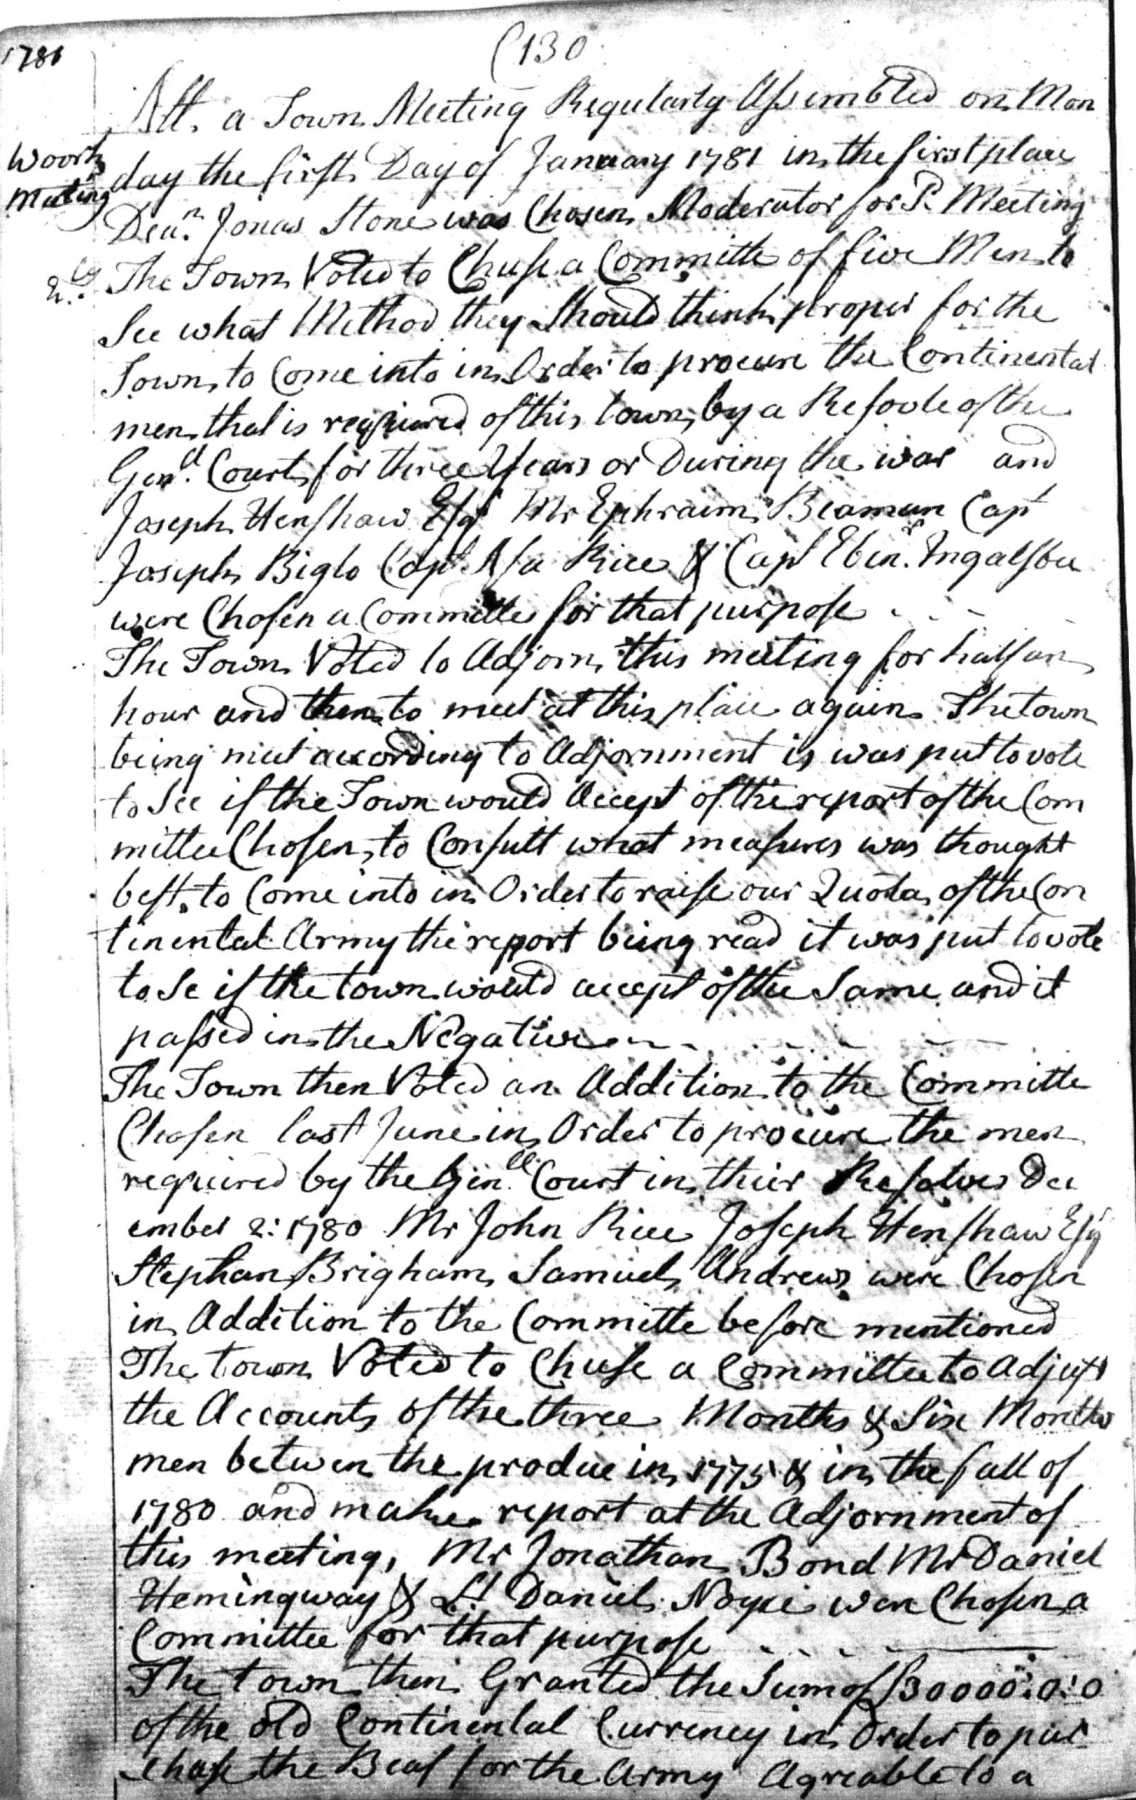 1781
(130
Att. a Town Meeting Regularly Assembled on Mon
Woorks
Meeting
day the first Day of January 1781 in the first place
Dean. Jonas Stone was Chosen Moderator for Sd. Meeting
The Town Voted to Chuse a Committe of five Men to
See what Method they Should think proper for the
Town to Come into in Order to procure the Continental
men that is required of this town by a Resolve of the
Genll. Court for three Years or During the war and
Joseph Henshaw Esqr Mr Ephraim Beaman Capt
Joseph Biglo Capt Asa Rice & Capt Ebinr. Ingalsbee
were Chosen a Committe for that purpose
The Town Voted to Adjorn this meeting for half an
hour and then to meet at this place again The town
being meet according to Adjornment is was put to vote
to See if the Town would Accept of the report of the Com
mittee Chosen to Consult what measures was thought
best to Come into in Order to raise our Quota of the Con
tinental Army the report being read it was put to vote
to Se if the town would accept of the Same and it
passed in the Negative
The Town then Voted an Addition to the Committe
Chosen last June in Order to procure the men
required by the Genll. Court in their Resolves Dec
ember 2: 1780 Mr John Rice Joseph Henshaw Esqr
Stephan Brigham Samuel Andrews were Chosen
in Addition to the Committe before mentioned
The town Voted to Chuse a Committee to Adjust
the Accounts of the three Months & Six Months
men between the produce in 1775 & in the fall of
1780 and make report at the Adjornment of
this meeting, Mr Jonathan Bond Mr Daniel
Hemingway & Lt Daniel Noyce were Chosen a
Committee for that purpose
The town then Granted the Sum of £30000:0:0
of the old Continental Currency in Order to pur
chase the Beaf for the Army Agreable to a